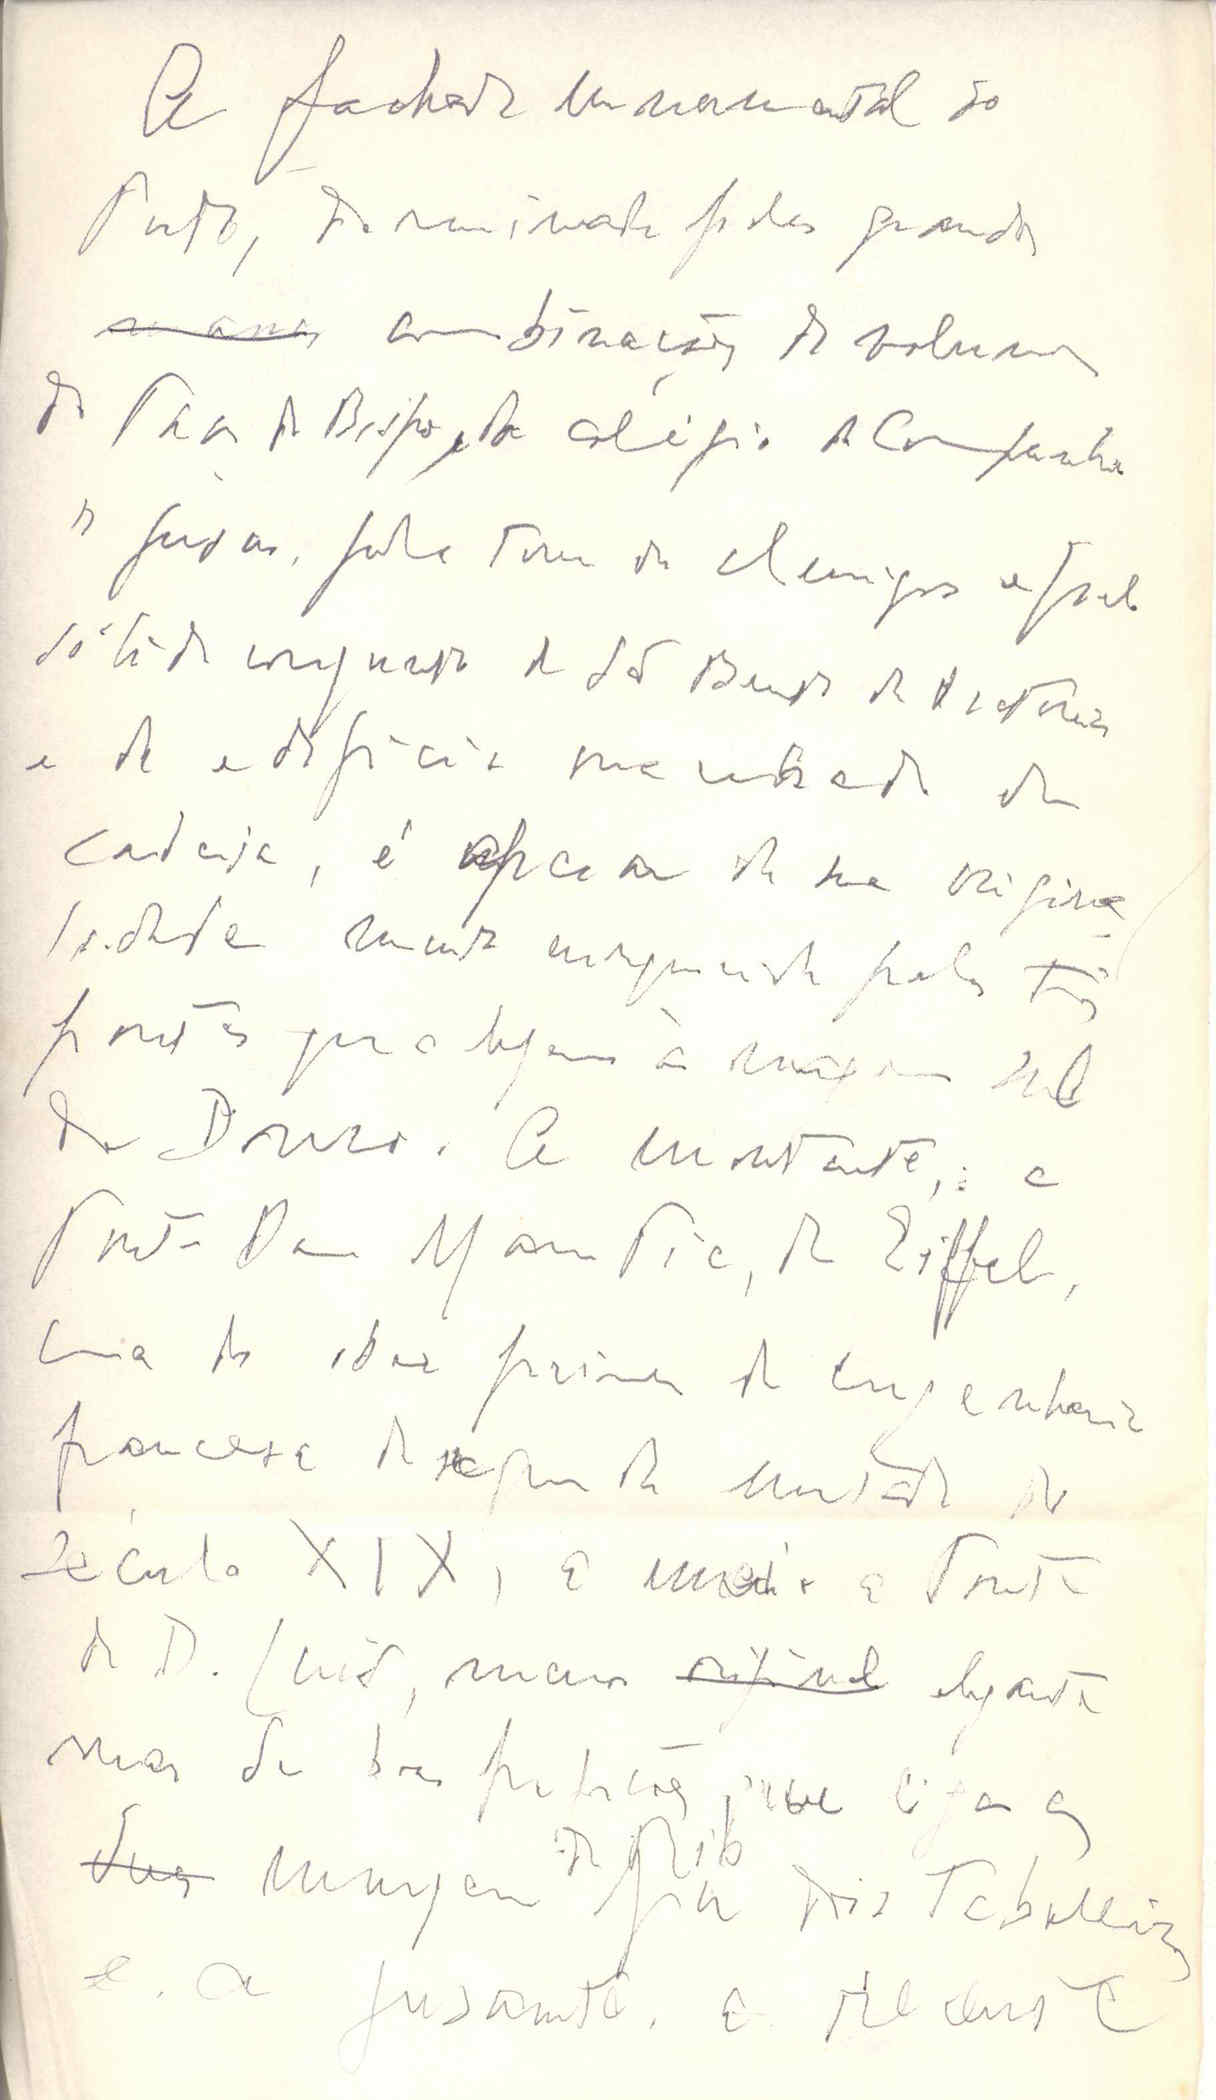 A fachada monumental do
Porto, dominada pelas grandes
massas combinações de volumes
do Paço do Bispo, do colégio da Companhia
de Jesus, pela torre dos Clerigos e pelo
sólido conjunto de São Bento da Victoria
e do edificio da
cadeia, é apesar da sua origina
lidade muito enriquecida pelas três
pontes que a ligam à margem sul
do Douro. A montante, a
Ponte Dona Maria Pia, de Eiffel,
uma das obras primas da engenharia
francesa da segunda metade do
século XIX, a meio a Ponte
de D. Luís, menos original elegante
mas de boas proporções, que liga as
duas margens do rio por dois taboleiros
e, a jusante, a recente